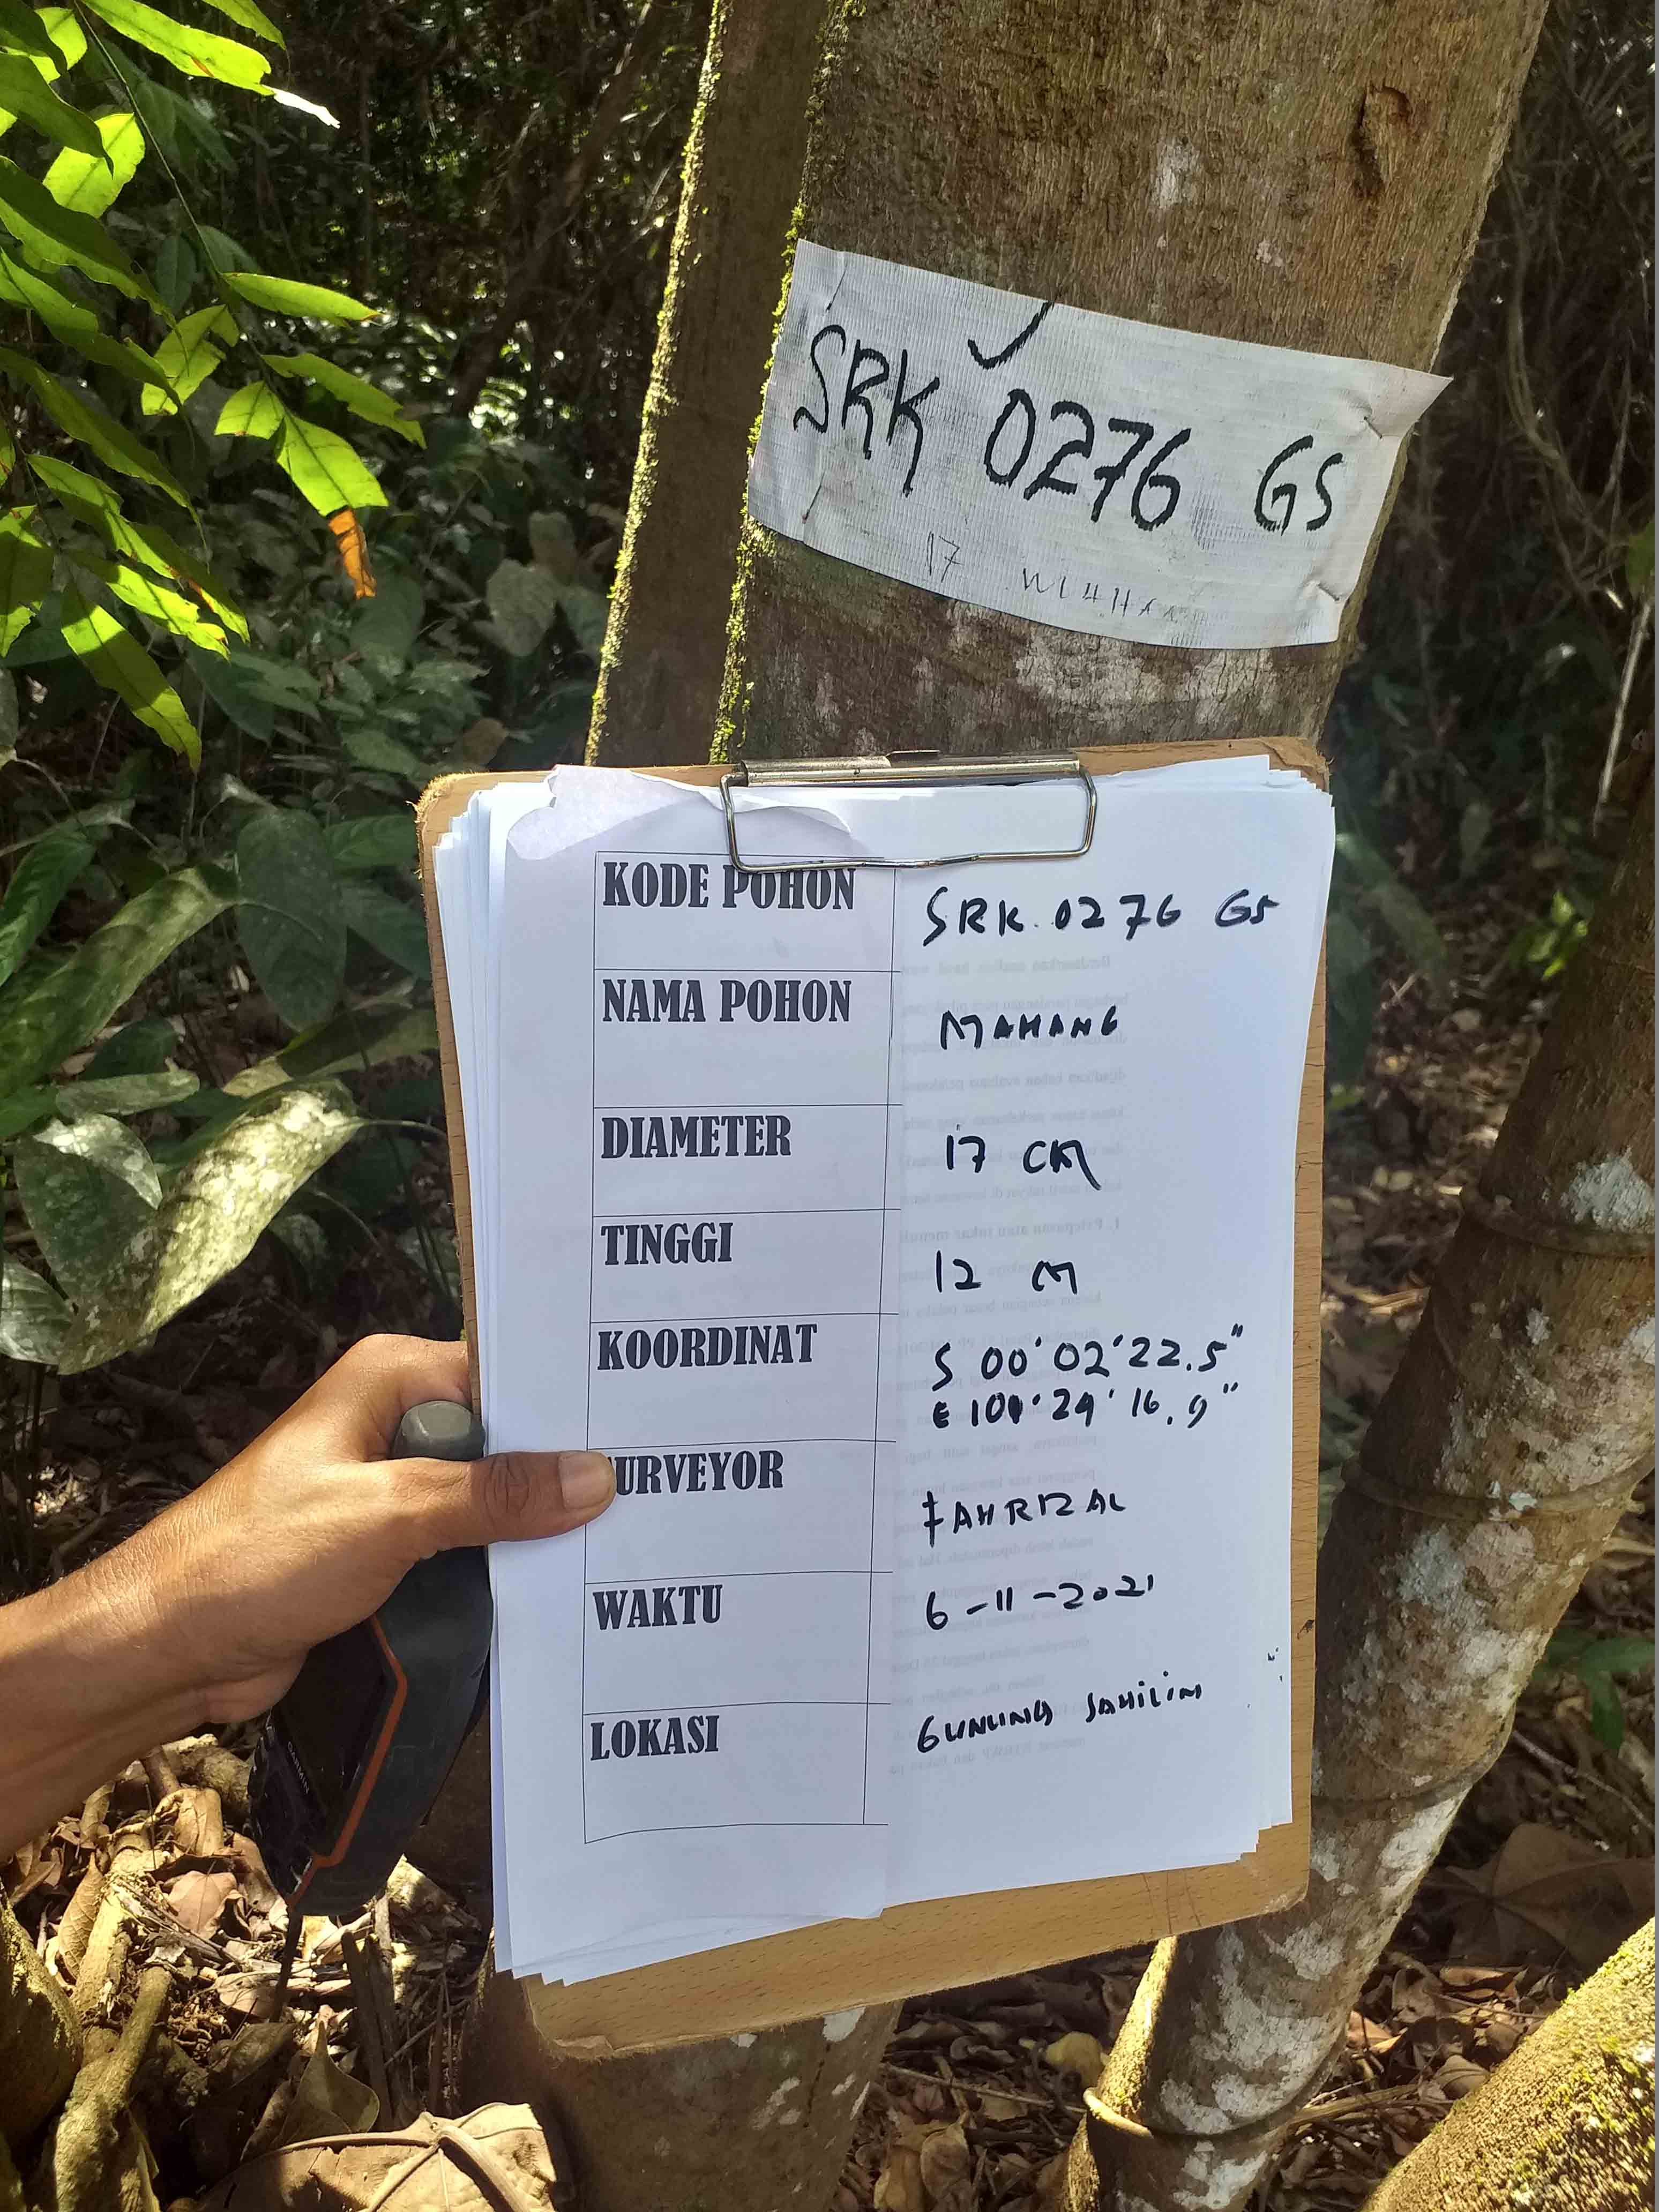 SRK 0276 GS
17
KODE POHON SRK. 0276 GS
NAMA POHON MAHANG
DIAMETER 17 CM
TINGGI 12 M
KOORDINAT S 00°02'22.5"
E 101°29'16.9"
URVEYOR FAHRIZAL
WAKTU 6-11-2021
LOKASI GUNUNG SAHILIM
GARMIN